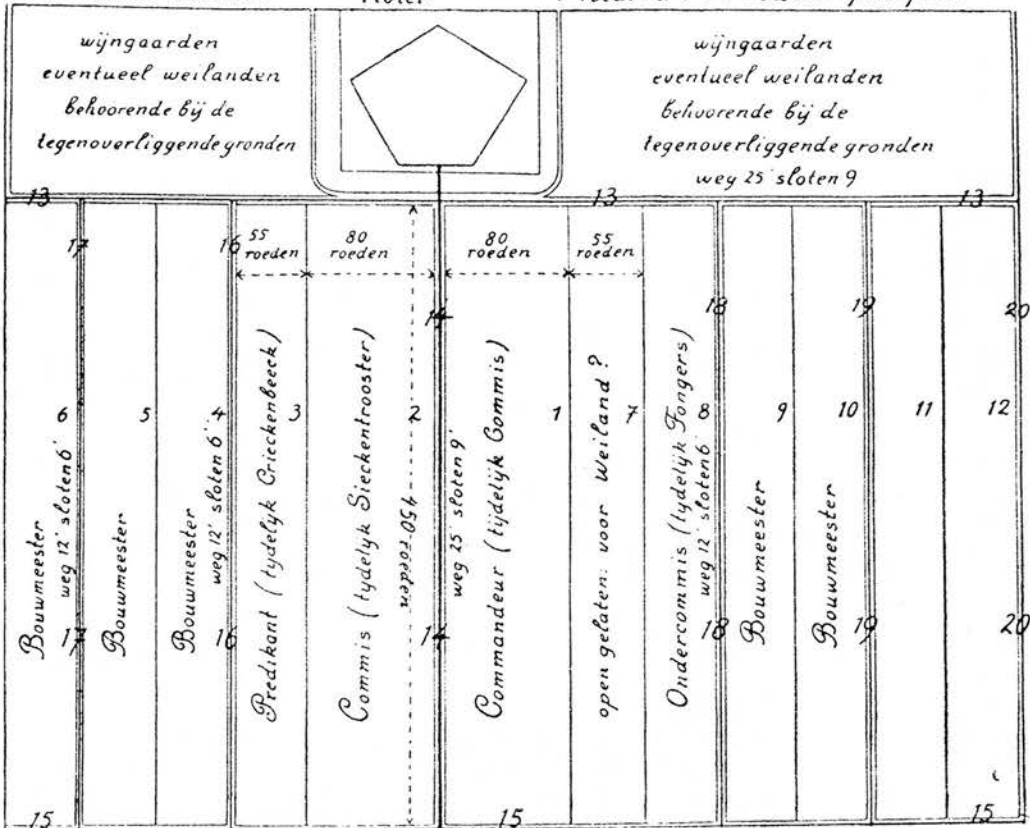 wijngaarden
eventueel weilanden
behoorende bij de
tegenoverliggende gronden
wijngaarden
eventueel weilanden
behoorende bij de
tegenoverliggende gronden
weg 25' sloten 9
13
13
13
17
16
55
roeden
80
roeden
80
roeden
55
roeden
14
18
19
20
6
5
4
3
2
1
7
8
9
10
11
12
Bouwmeester
weg 12' sloten 6'
Bouwmeester
Bouwmeester
weg 12' sloten 6'
Predikant (tydelyk Crieckenbeeck)
Commis (tydelyk Sieckentrooster)
450 roeden
weg 25' sloten 9'
Commandeur (tijdelijk Commis)
open gelaten: voor Weiland?
Ondercommis (tydelyk Fongers)
weg 12' sloten 6'
Bouwmeester
Bouwmeester
17
16
14
18
19
20
15
15
15